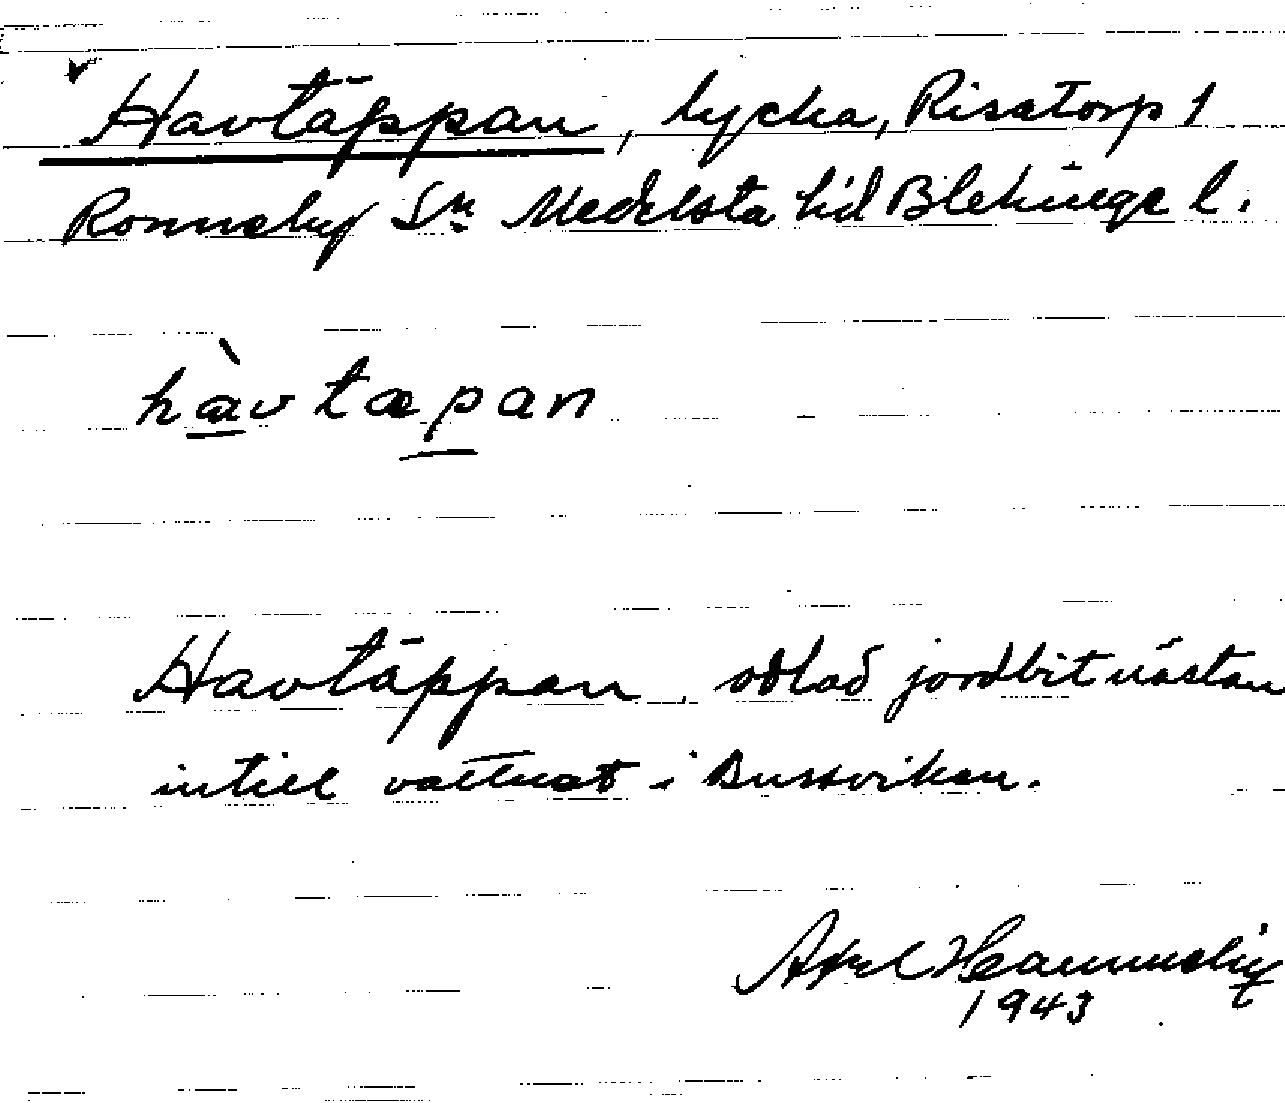 Havtäppan, lycka, Risatorp 1
Ronneby Sn Medelsta hd Blekinge l.
hàvtæpan
Havtäppan odlad jordbit nästan
intill vattnet i Bussviken.
Axel
1943